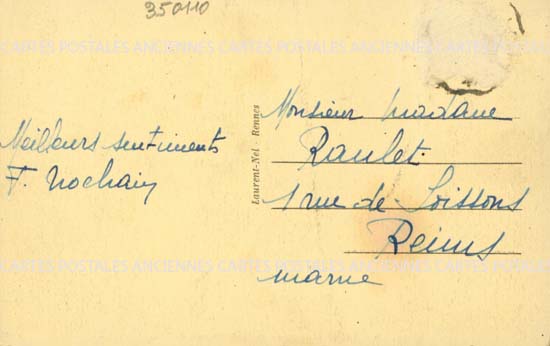 350110
CARTES POSTALES ANCIENNES CARTES POSTALES ANCIENNES CARTES POSTALES
Meilleurs sentiments
F. Nochain
Laurent-Nel - Rennes
Monsieur Madame
Raulet
1 rue de Soissons
Reims
marne
CARTES POSTALES ANCIENNES CARTES POSTALES ANCIENNES CARTES POSTALES